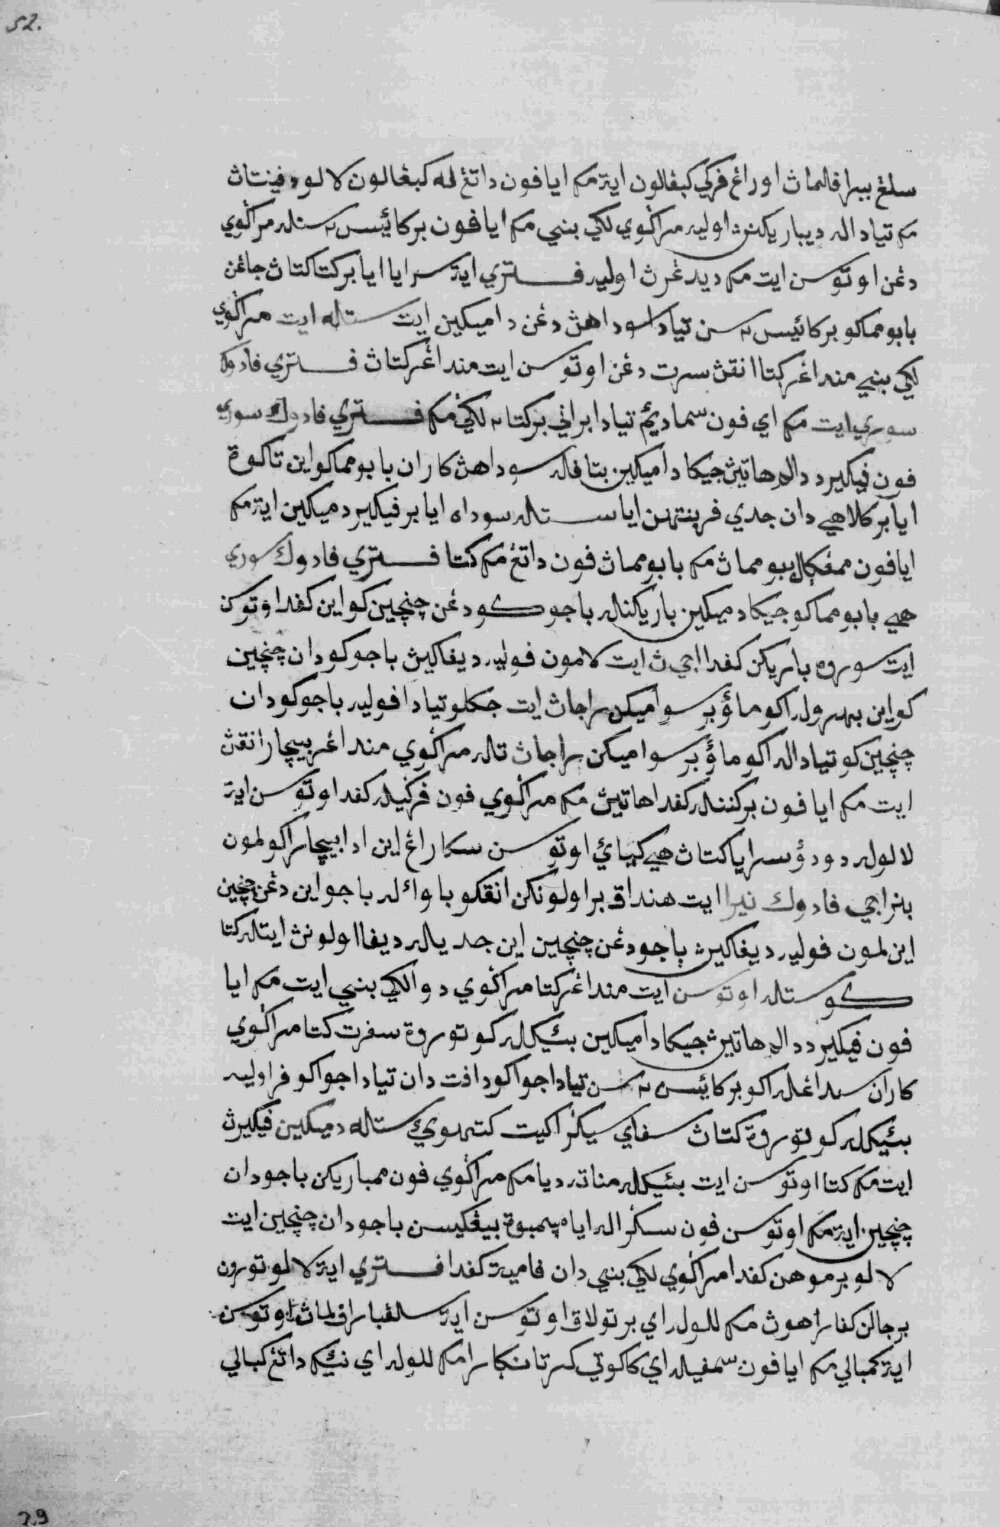 52.
سلڠ ببراف لماڽ اورڠ فرڬي كبڤالون ايت مك اياڤون داتڠله كبڠالون لالو دڤينتاڽ
مك تيادله ديباريكنڽ اوليه مراڬوي لكي بيني مك اياڤون برکائيسن ستله مراڬوي
دڠن اوتوسن ايت مك ديدڠرڽ اوليه ڤتري ايت سراي اي بركات كتاڽ جاڠن
بابو مماكو بركائيسن تياد سوداهڽ دڠن دميكين ايت ستله ايت مراڬوي
لكي بيني منداڠر كتا انقڽ سرت دڠن اوتوسن ايت منداڠر كتاڽ ڤتري ڤادوك
سوري ايت مك اي ڤون سمادييم تياد ابراني بركتا٢ لكي مك ڤتري ڤادوك سوري
ڤون ڤيكيرد دالم هاتيڽ جيكا دميكين بتاڤاله سوداهڽ كارن بابو مماكو اين تاكوة
ايا بركلاهي دان جدي ڤرينتهن ايا ستله سوداه ايا برڤيكير دميكين ايت مك
اياڤون ممڠݢل ببو مماڽ مك بابو مماڽ ڤون داتڠ مك كتا ڤتري ڤادوك سوري
هي بابو مماكو جيكا دميكين باريكنله باجوكو دڠن چنچين كو اين كڤد اوتوسن
ايت سوروه باريكن كڤد اجيڽ ايت لامون ڤوليه ديڤاكيڽ باجوكو دان چنچين
كو اين بهرولا اكو ماؤ برسواميكن راجاڽ ايت جكلو تياد اڤوليه باجوكو دان
چنچين كو تيادله اكو ماؤ برسواميكن راجاڽ تله مراڬوي منداڠر بيچارا انقڽ
ايت مك اياڤون بركننله كڤد هاتيڽ مك مراڬوي ڤون ڤرڬيله كڤد اوتوسن ايت
لالوله دودؤ سراي كتاڽ هي كياي اوتوسن سكارڠ اين اد بيچارا كو لمون
بنراجي ڤادوك نيرا ايت هنداق براولونكن انقكو باوا اله باجو اين دڠن چنچين
اين لمون ڤوليه ديڤاكيڽ باجو دڠن چنچين اين جديله ديڤا اولونڽ ايتله كتا
كو ستله اوتوسن ايت منداڠر كتا مراڬوي دوا لكي بيني ايت مك ايا
ڤون ڤيكيرد دالم هاتيڽ جيكا دميكين بئيكله كو توروة سڤرت كتا مراڬوي
كارن سداڠله اكو بركائيسن تياد اجوا كو داڤت دان تياد اجوا كو ڤراوليه
بئيكله كو توروة كتاڽ سڤاي سيڬرا كيت كتمووي ستله دميكين ڤيكيرڽ
ايت مك كتا اوتوسن ايت بئيكله مناته ديا مك مراڬوي ڤون ممباريكن باجو دان
چنچين ايت مك اوتوسن ڤون سݢراله ايا مپمبوة بيڠكيسن باجو دان چنچين ايت
لالو برموهن كڤد مراڬوي لكي بيني دان ڤاميت كڤد ڤتري ايت لالو تورون
برجالن كڤاراهوڽ مك للوله اي برتولاق اوتوسن ايت سلڠ بارڤ لماڽ اوتوسن
ايت كمبالي مك اياڤون سمڤيله اي كاكوتي كرتا نݢارا مك للوله اي نئيك داتڠ كبالي
29